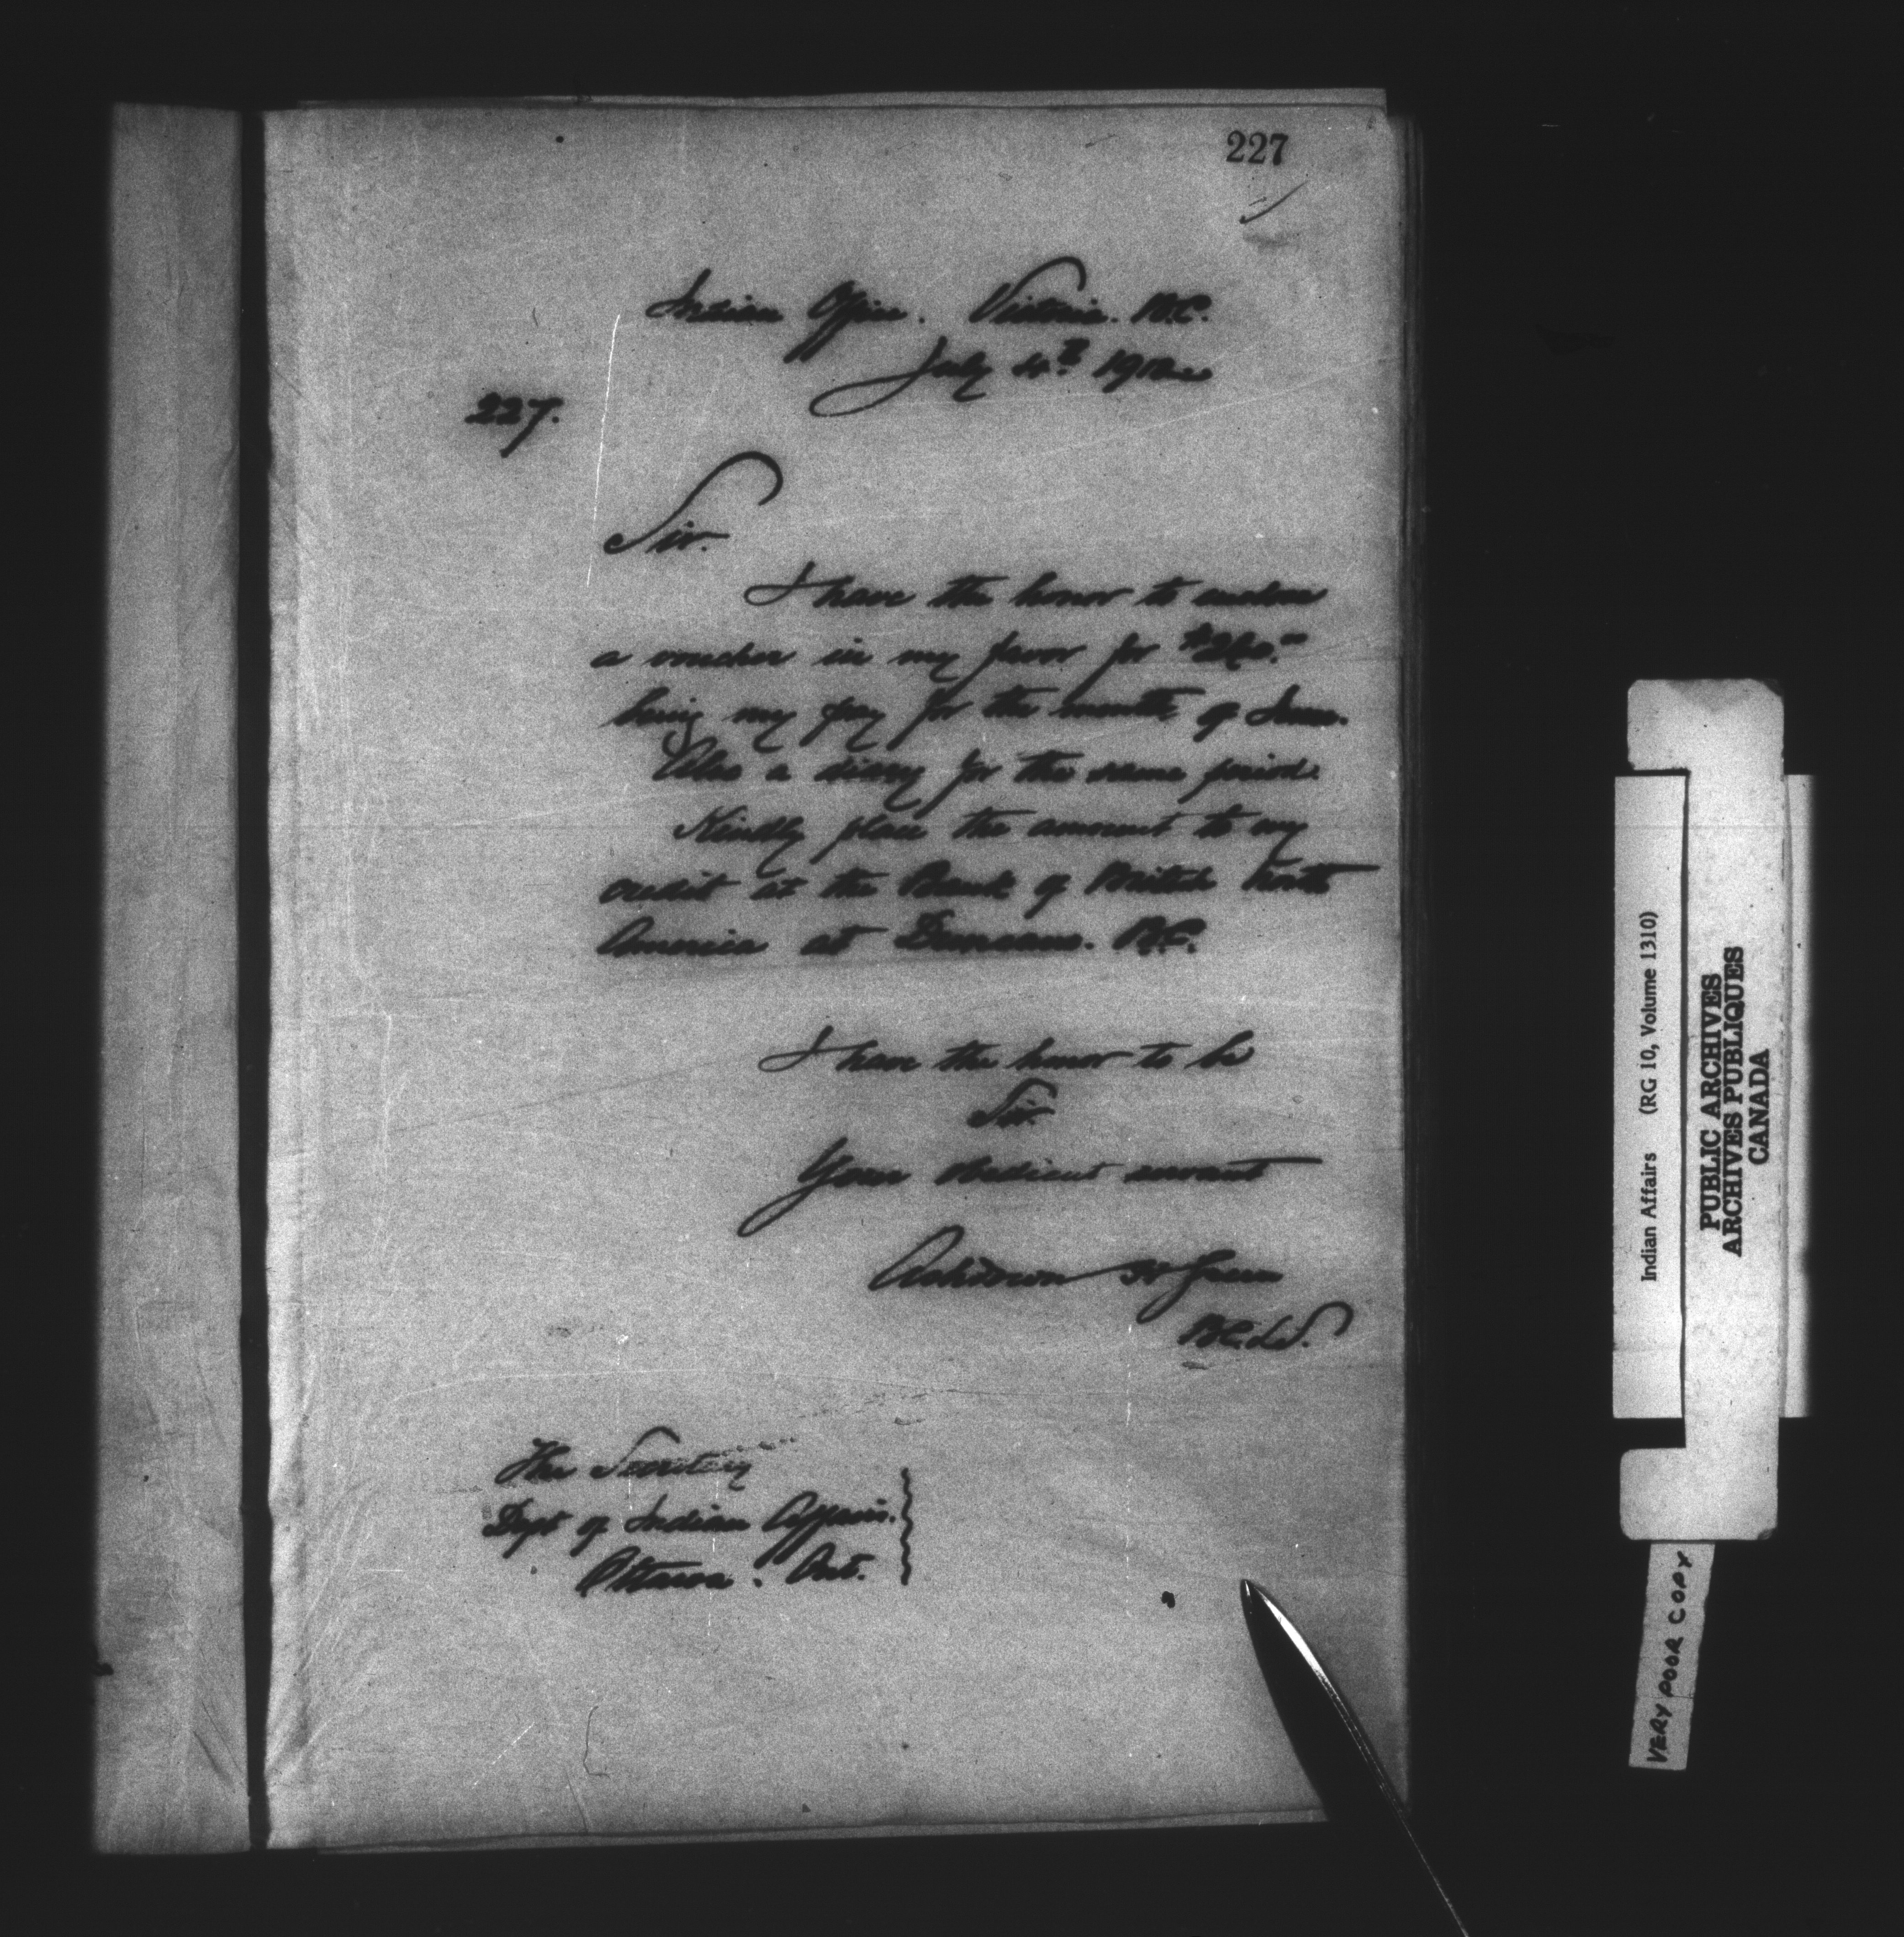 227
Indian Office. Victoria. B.C.
July 4th
227.
Sir.
I have the honor to enclose
a voucher in my favor for
being my pay for the month of June.
Also a diary for the same period.
Kindly place the amount to my
credit at the Bank of British North
America at Duncans. B.C.
I have the honor to be
Sir.
Your obedient servant
Ashdown H Green
B.C.L.S.
The Secretary
Dept of Indian Affairs.
Ottawa. Ont.
Indian Affairs (RG 10, Volume 1310)
PUBLIC ARCHIVES
ARCHIVES PUBLIQUES
CANADA
VERY POOR COPY